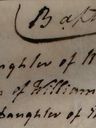 Bapt
ughter of W
of William
Daughter of